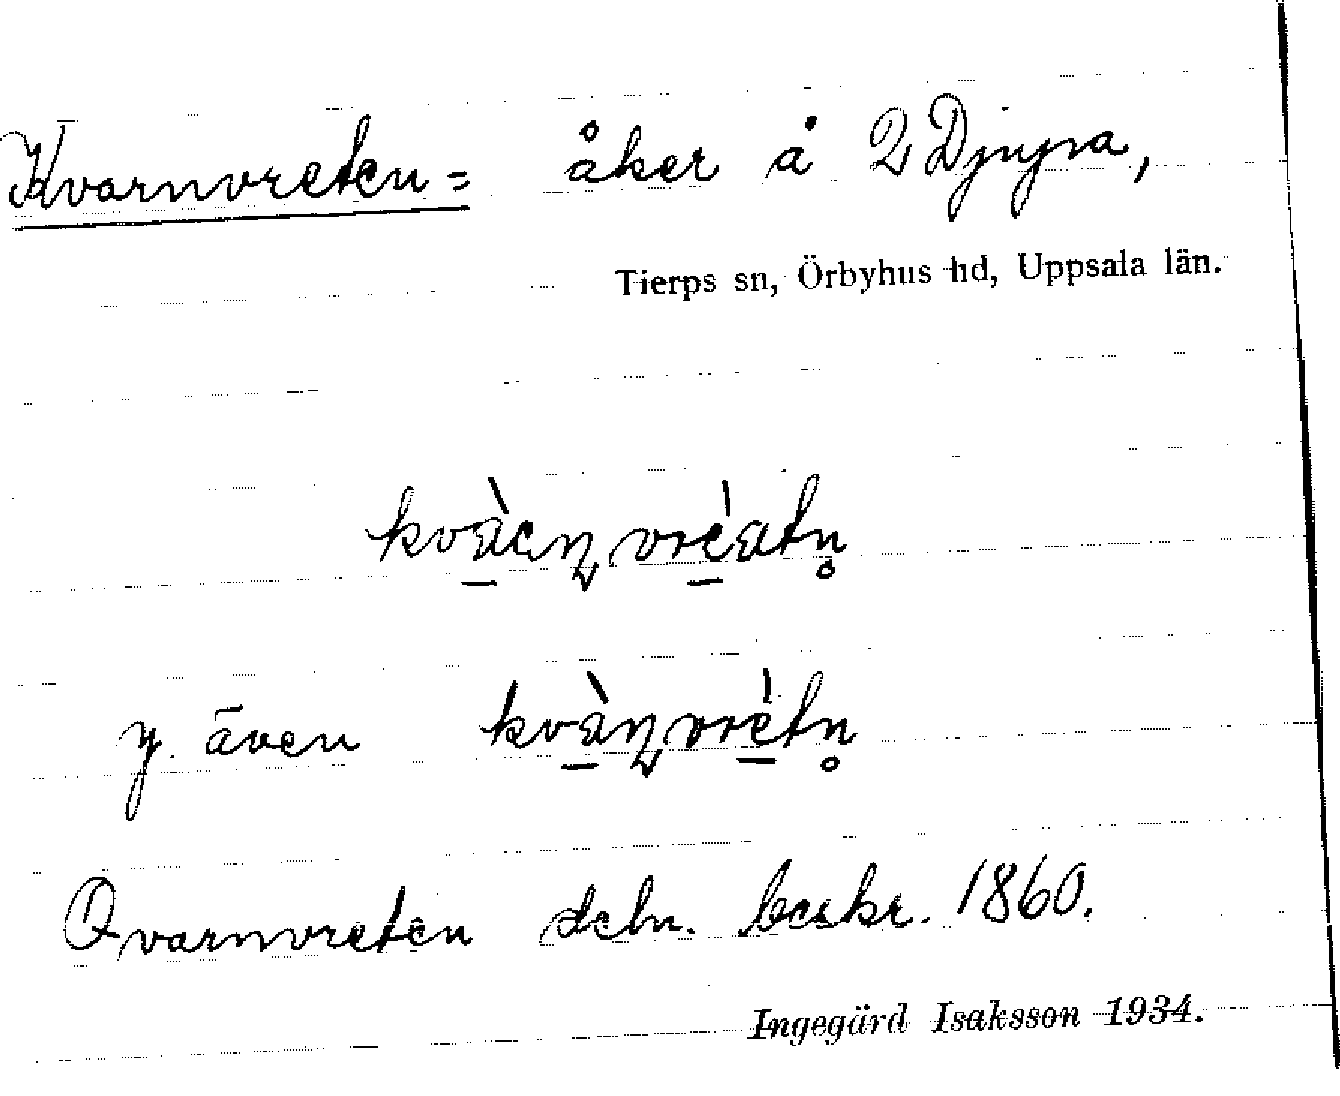 Kvarnvreten = åker å 2 Djupa,
Tierps sn, Örbyhus hd, Uppsala län.
y. även
Qvarnvreten deln. beskr. 1860.
Ingegärd Isaksson 1934.